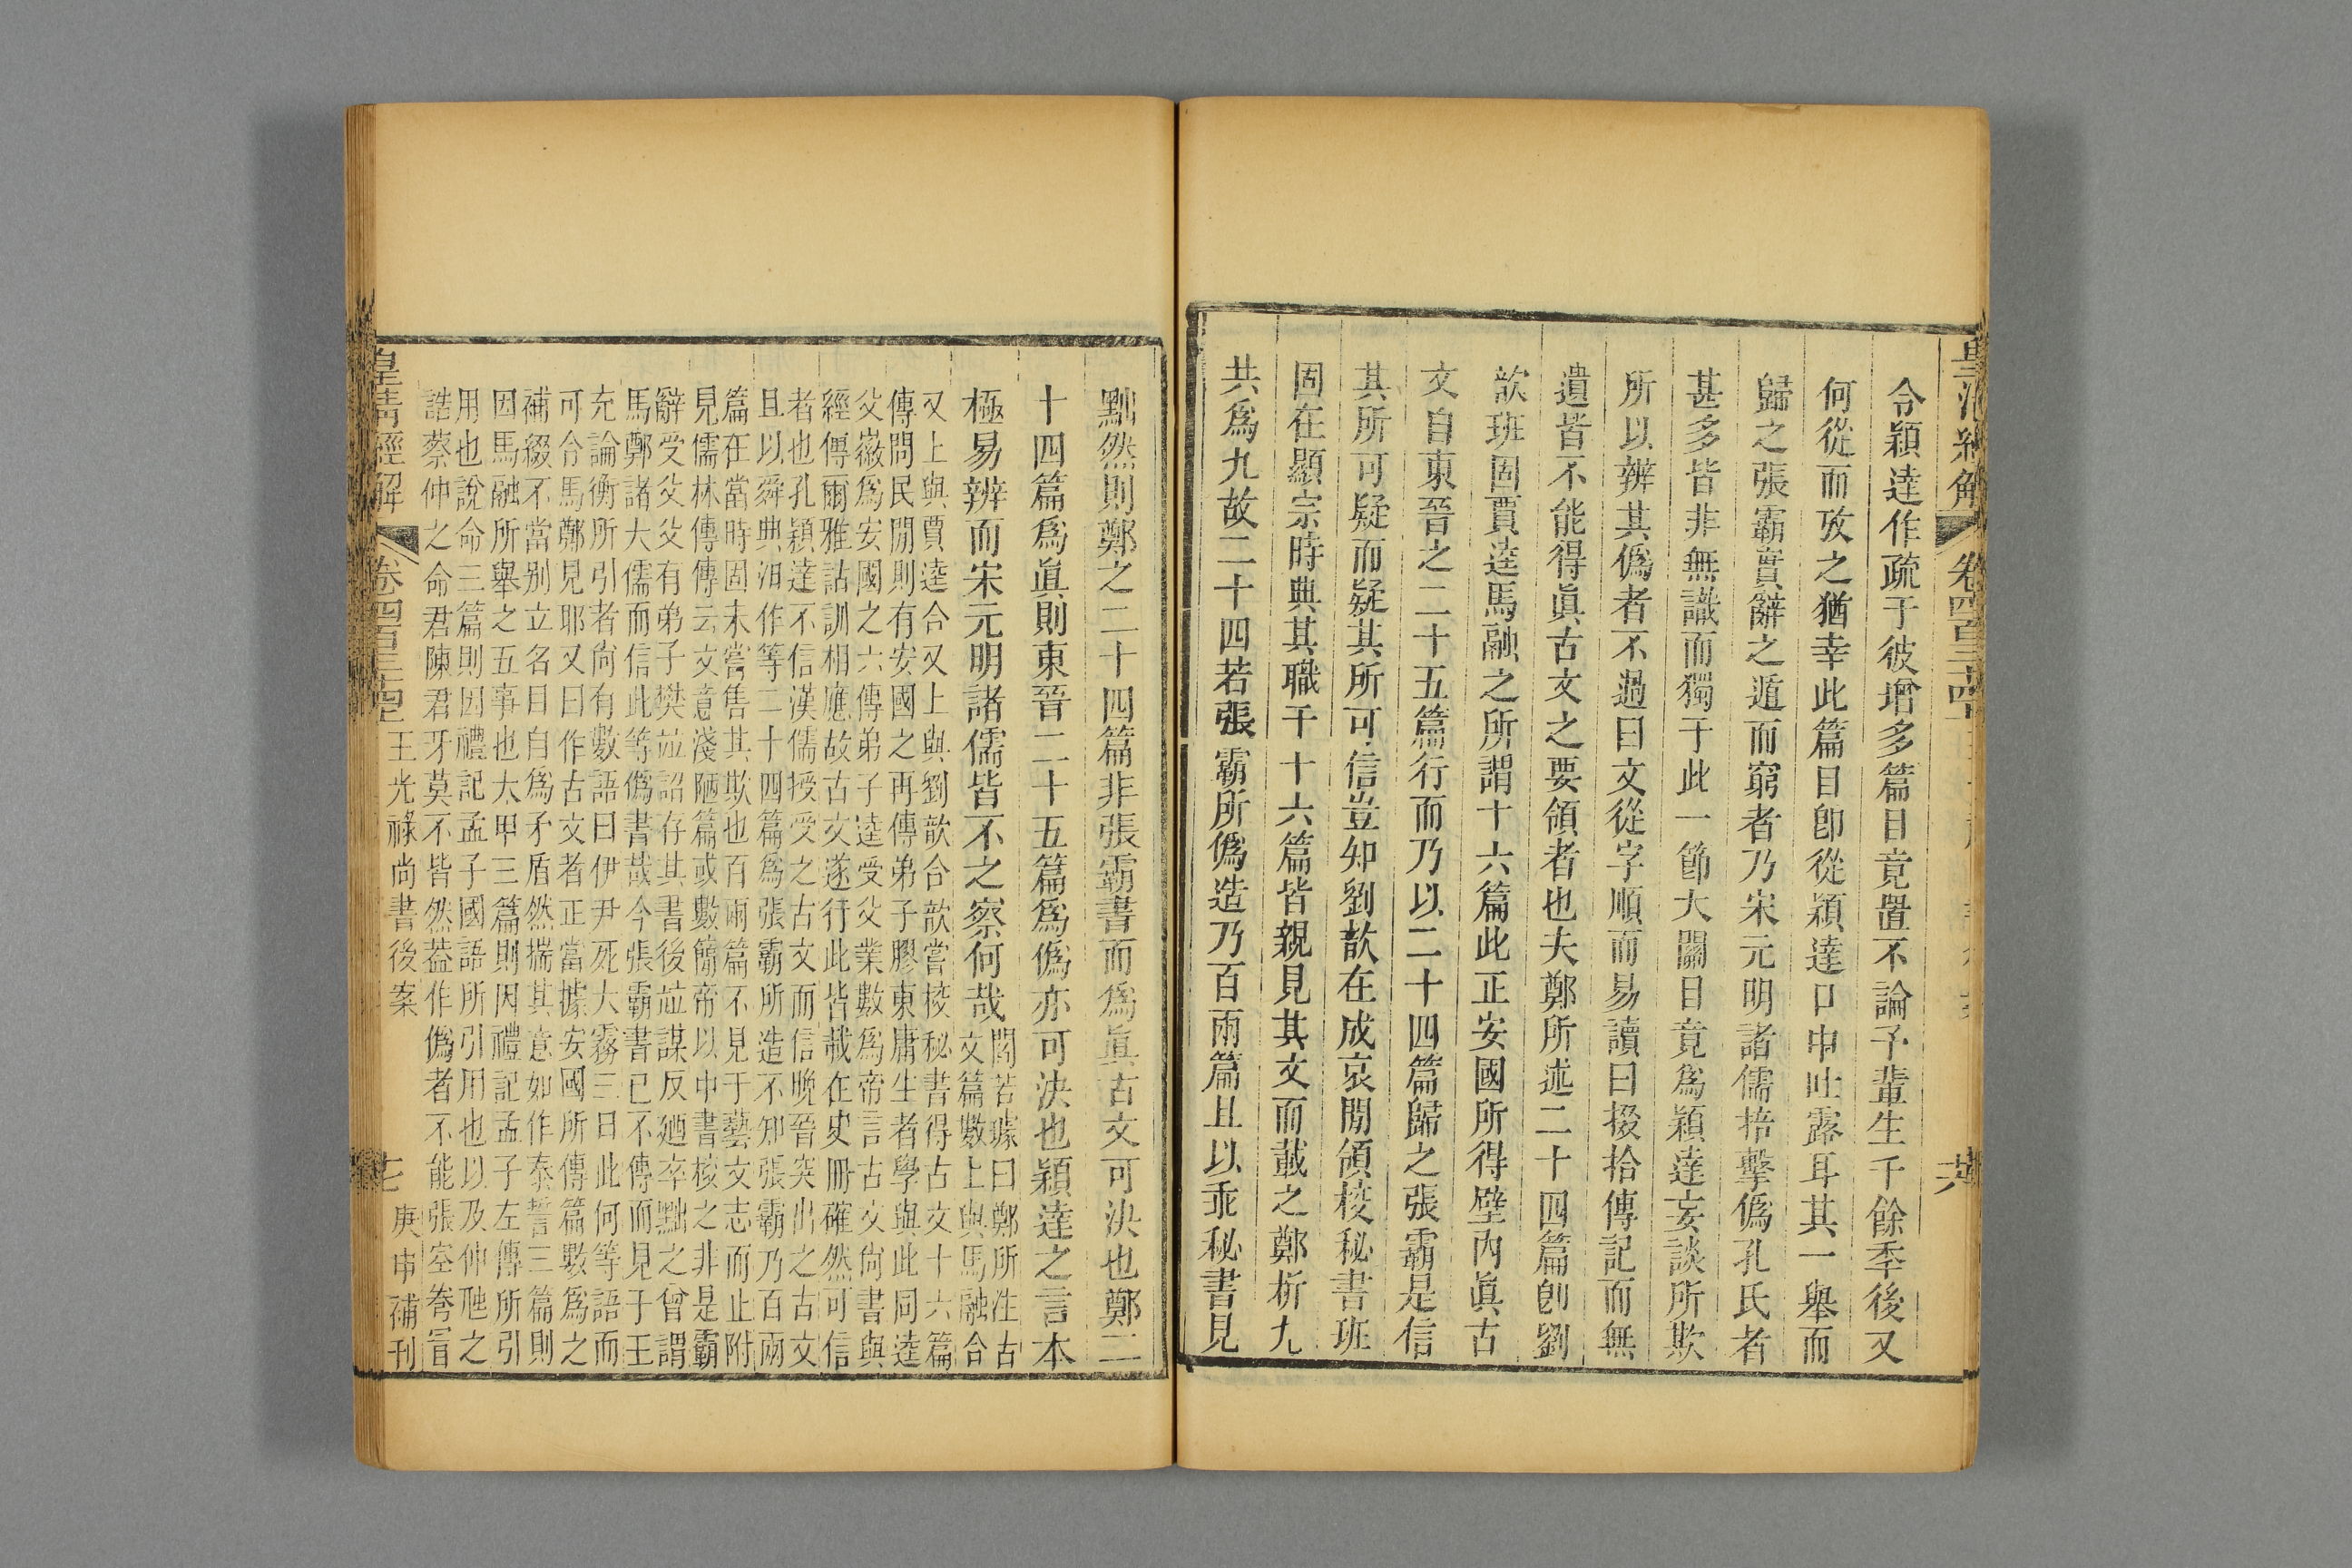 令穎達作疏于彼增多篇目竟置不論予輩生千餘季後又
何從而攷之猶幸此篇目卽從穎達口中吐露耳其一舉而
歸之張霸實辭之遁而窮者乃宋元明諸儒掊擊僞孔氏者
甚多皆非無識而獨于此一節大關目竟爲穎達妄談所欺
所以辨其僞者不過曰文從字順而易讀曰掇拾傳記而無
遺皆不能得眞古文之要領者也夫鄭所述二十四篇卽劉
歆班固賈逵馬融之所謂十六篇此正安國所得壁內眞古
文自東晉之二十五篇行而乃以二十四篇歸之張霸是信
其所可疑而疑其所可信豈知劉歆在成哀閒領校秘書班
固在顯宗時典其職干十六篇皆親見其文而載之鄭析九
共爲九故二十四若張霸所僞造乃百兩篇且以乖秘書見
黜然則鄭之二十四篇非張霸書而爲眞古文可決也鄭二
十四篇爲眞則東晉二十五篇爲僞亦可決也穎達之言本
極易辨而宋元明諸儒皆不之察何哉
閻若璩曰鄭所注古
文篇數上與馬融合
又上與賈逵合又上與劉歆合歆嘗校秘書得古文十六篇
傳問民閒則有安國之再傳弟子膠東庸生者學與此同逵
父徽爲安國之六傳弟子逵受父業數爲帝言古文尙書與
經傳爾雅詁訓相應故古文遂行此皆載在史冊確然可信
者也孔穎達不信漢儒授受之古文而信晚晉突出之古文
且以舜典汩作等二十四篇爲張霸所造不知張霸乃百兩
篇在當時固未嘗售其欺也百兩篇不見于藝文志而止附
見儒林傳傳云文意淺陋篇或數簡帝以中書校之非是霸
辭受父父有弟子樊竝詔存其書後竝謀反廼卒黜之曾謂
馬鄭諸大儒而信此等僞書哉今張霸書已不傳而見于王
充論衡所引者尙有數語曰伊尹死大霧三日此何等語而
可令馬鄭見耶又曰作古文者正當據安國所傳篇數爲之
補綴不當別立名目自爲矛盾然揣其意如作泰誓三篇則
因馬融所舉之五事也大甲三篇則因禮記孟子左傳所引
用也說命三篇則因禮記孟子國語所引用也以及仲虺之
誥蔡仲之命君陳君牙莫不皆然葢作僞者不能張空弮冒
皇清經解
卷四百三十四
王光祿尙書後案
七
庚申補刊